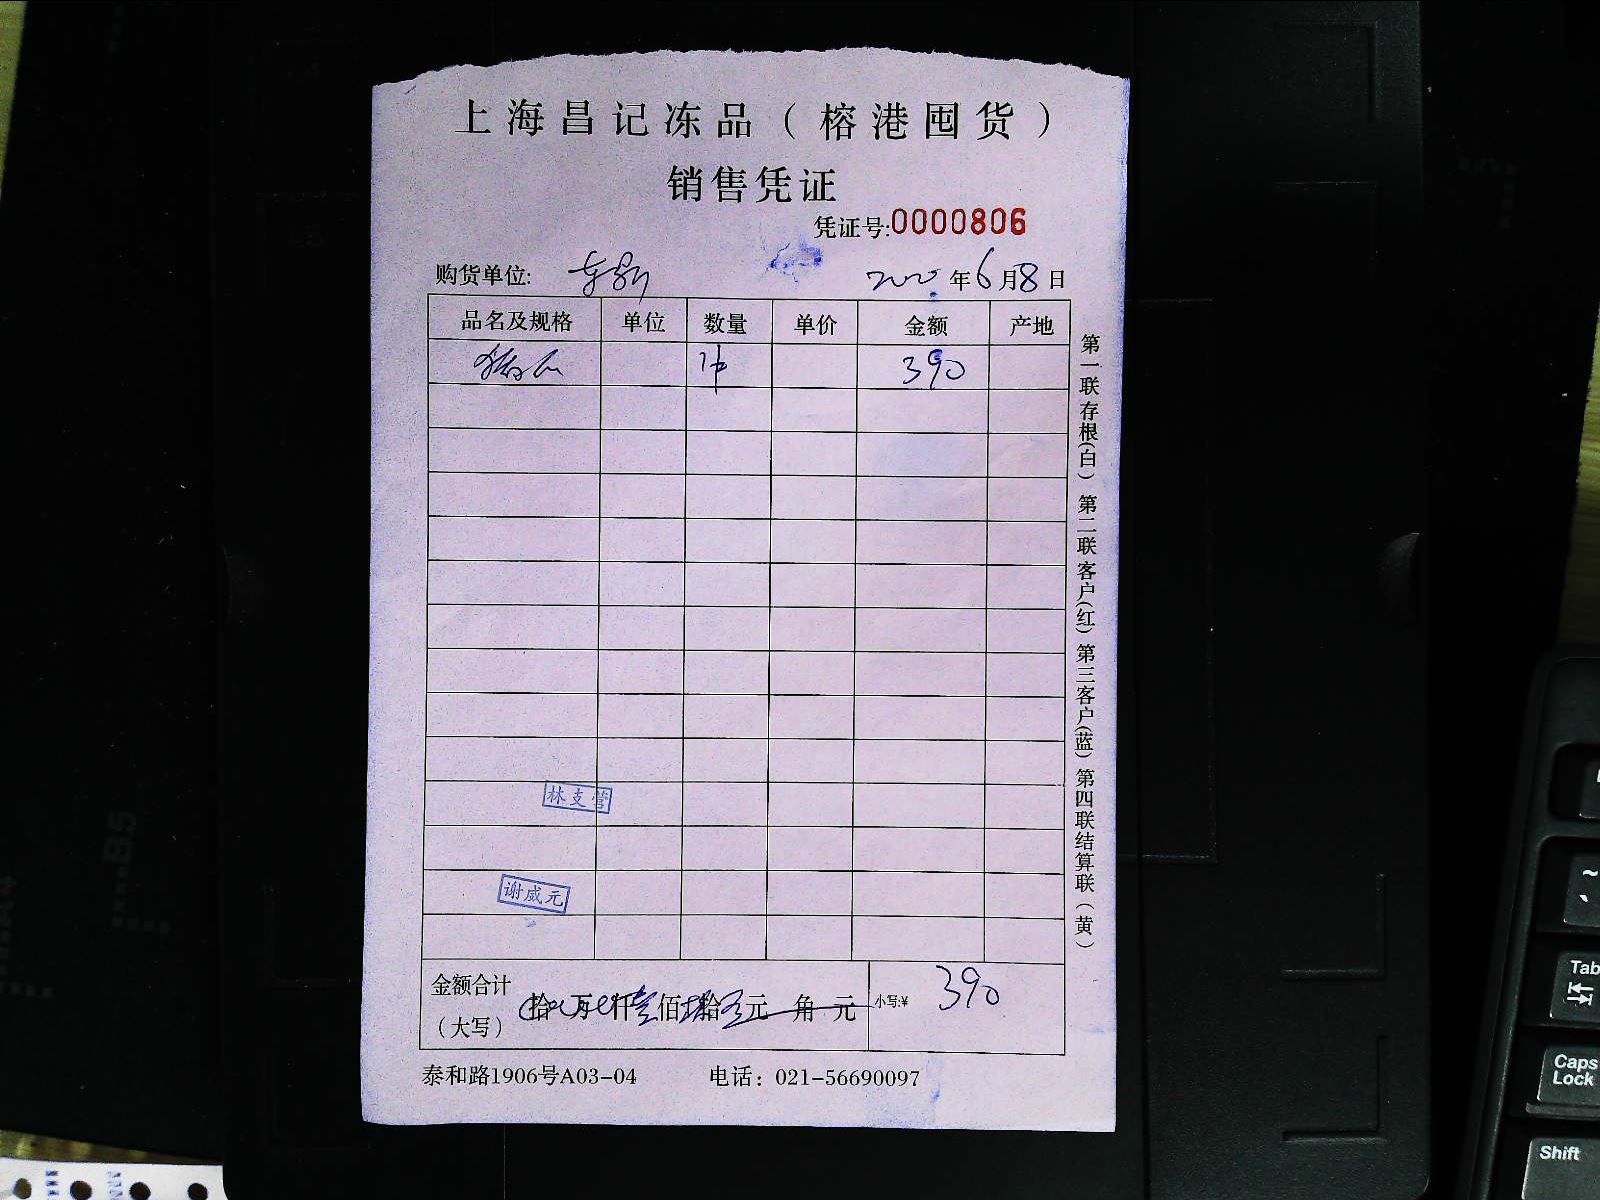 上海昌记冻品（榕港囤货）
销售凭证
凭证号:0000806
购货单位:
年6月8日
品名及规格 单位 数量 单价 金额 产地
1件 390
第一联存根(白) 第二联客户(红) 第三客户(蓝) 第四联结算联(黄)
林支营
谢威元
金额合计
（大写）
拾 万 仟 佰 拾 元 角 元 小写:¥ 390
泰和路1906号A03-04 电话：021-56690097
B5
Tab
Caps
Lock
Shift